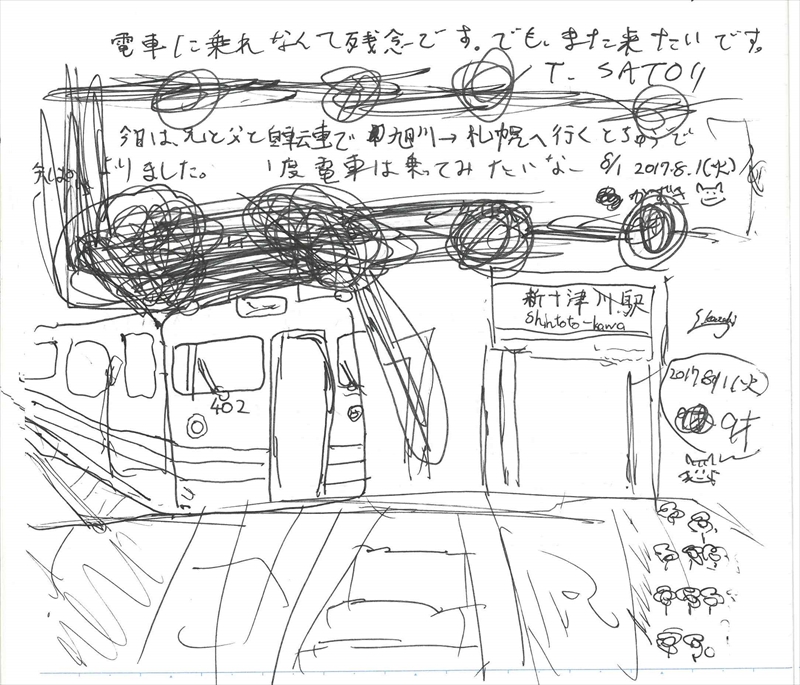 電車に乗れなんて残念です。でも、また来たいです。
T. SATOU
今日は、兄と父と自転車で旭川→札幌へ行くとちゅうで
よりました。 1度電車は乗ってみたいなー 8/1 2017.8.1(火)
かずき
新十津川駅
Shintoto-kawa
402
2017 8/1(火)